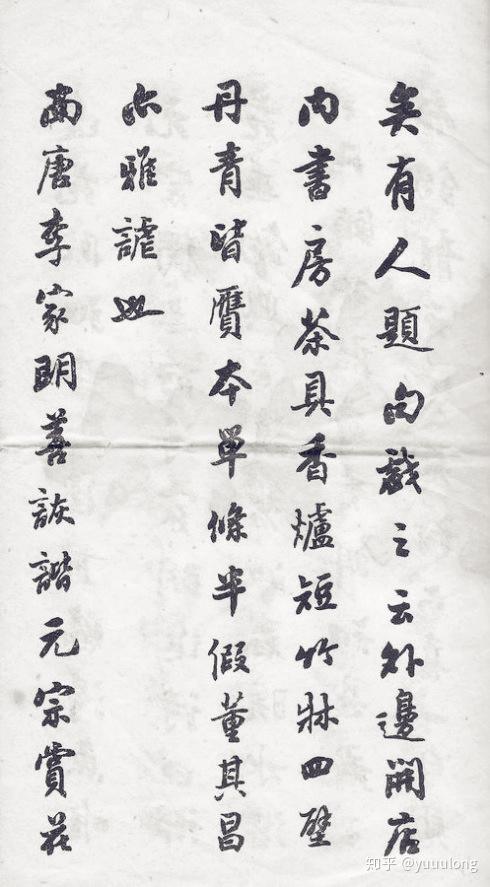 矣有人題句戲之云外邊開店
內書房茶具香爐短竹牀四壁
丹青皆贋本單條半假董其昌
亦雅謔也
南唐李家明善詼諧元宗賞花
知乎 @yuuulong